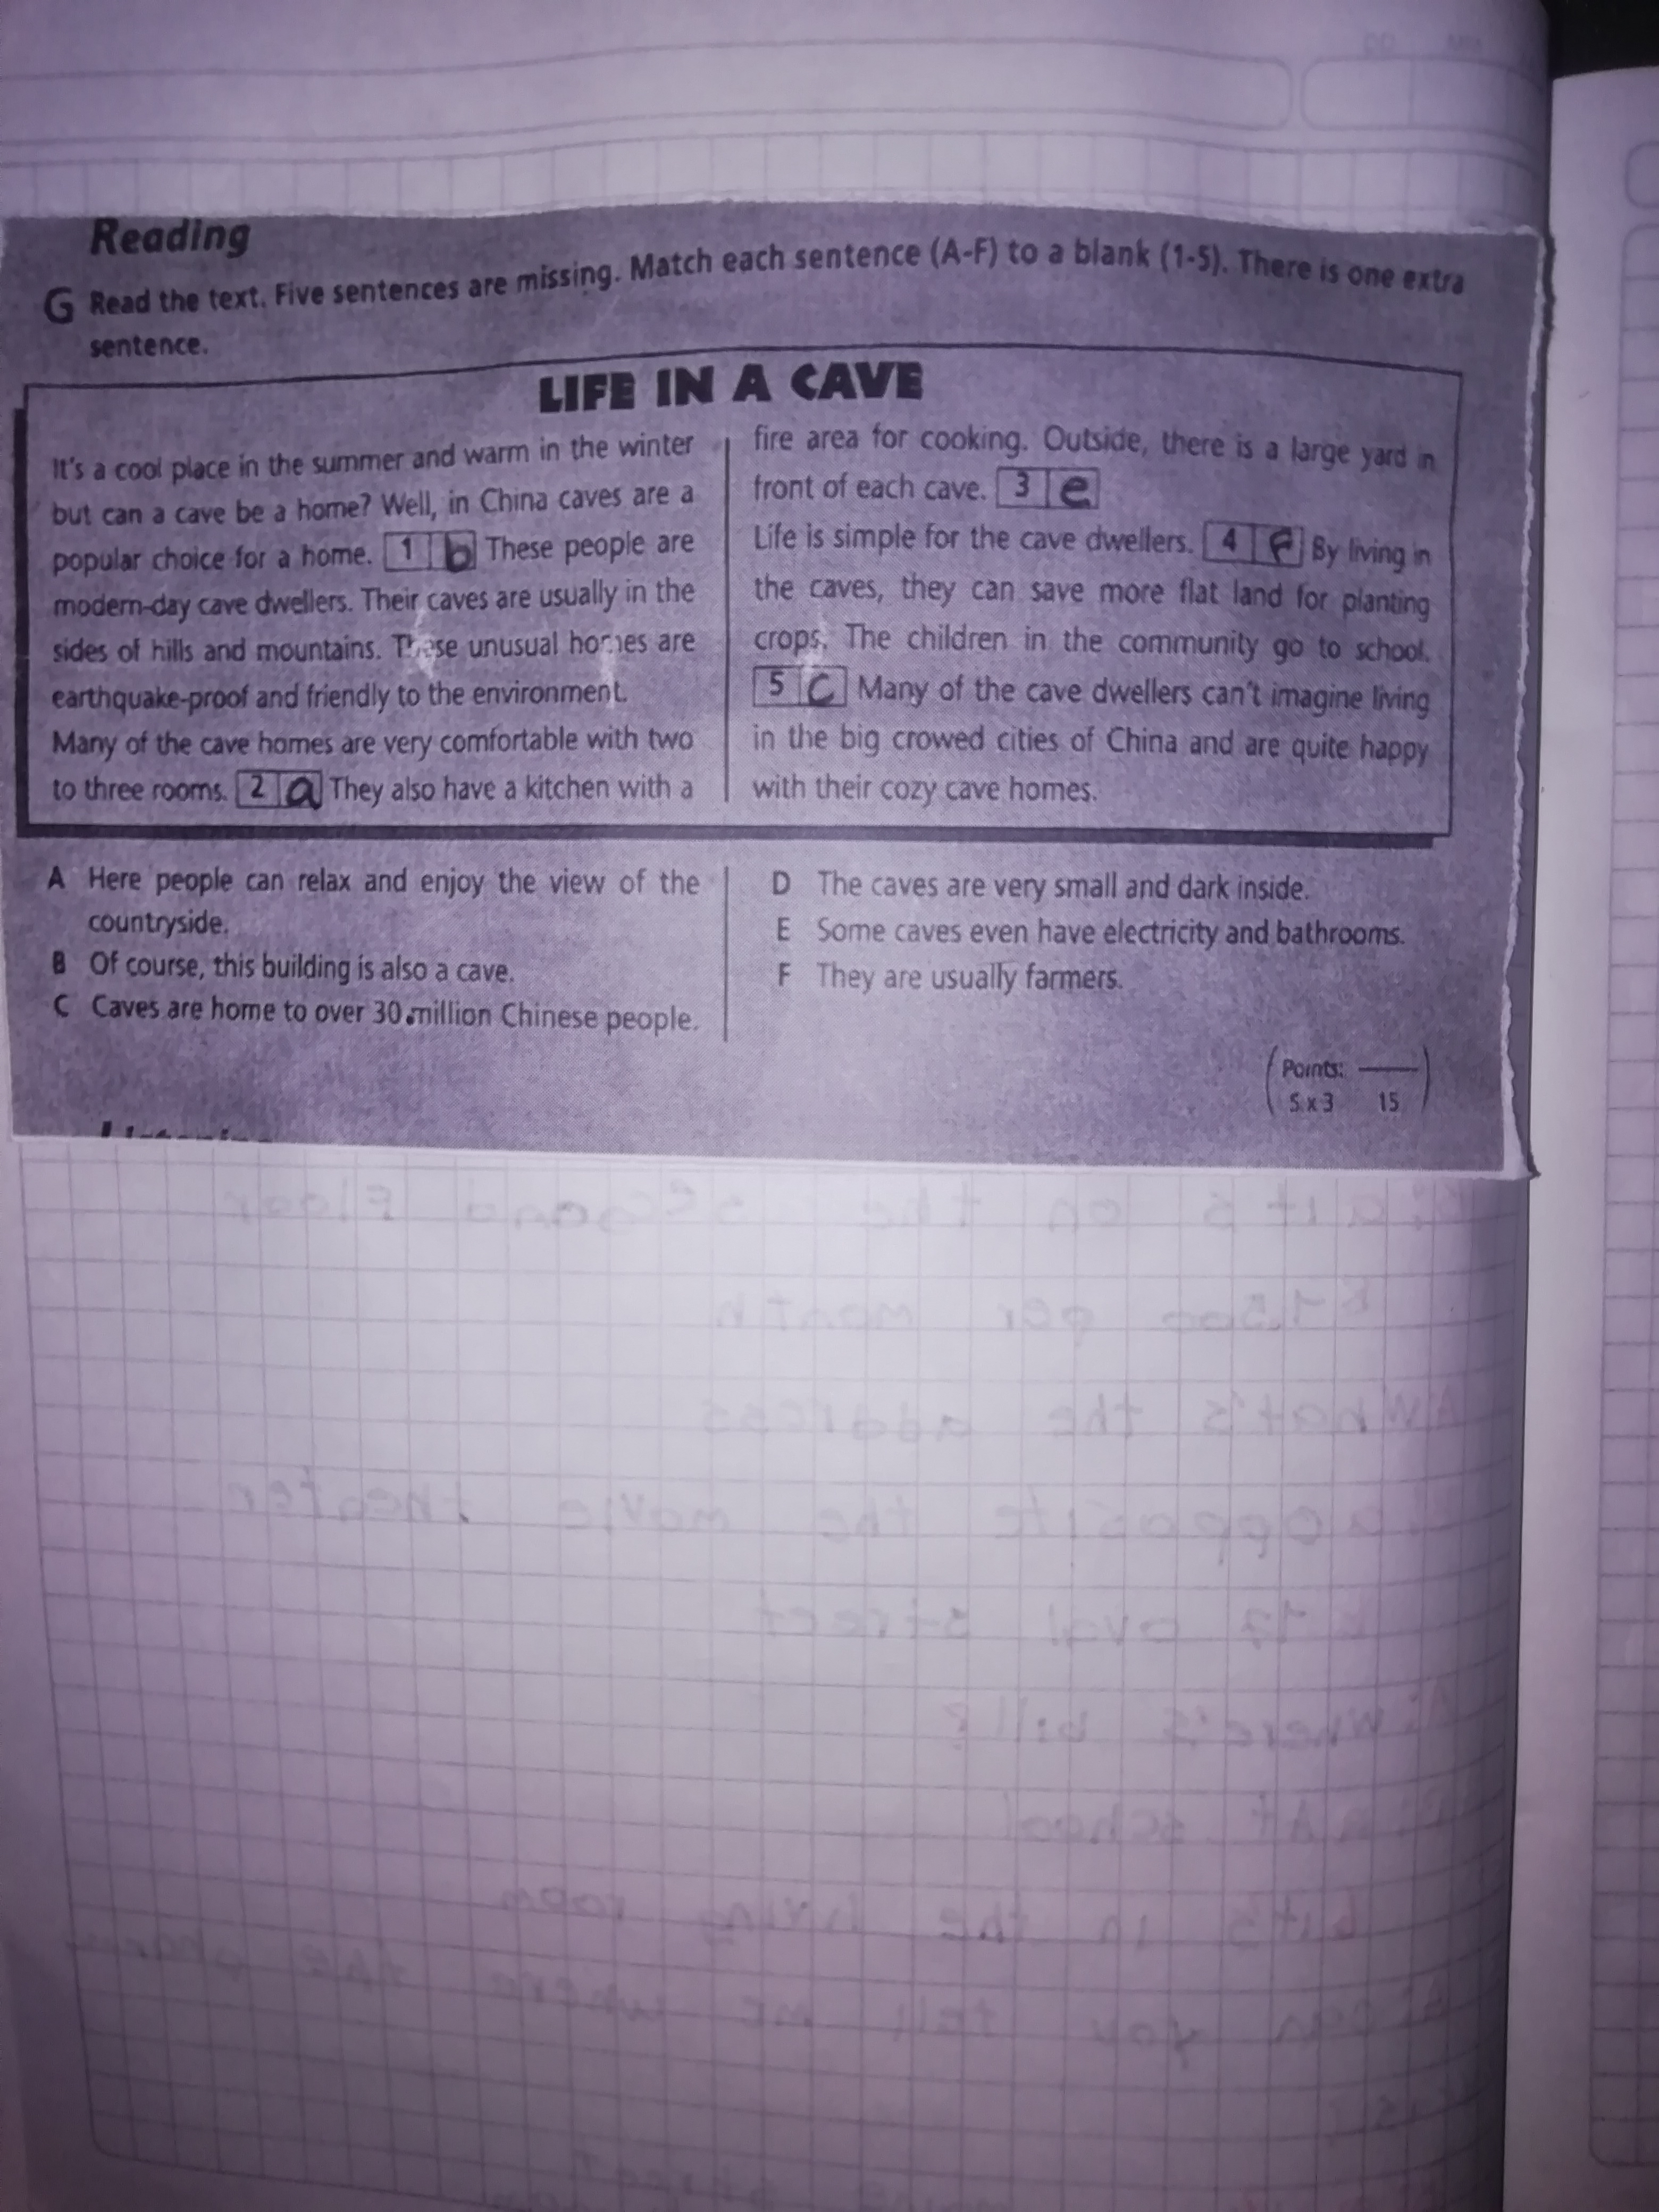 Reading
G Read the text. Five sentences are missing. Match each sentence (A-F) to a blank (1-5). There is one extra
sentence.
LIFE IN A CAVE
It's a cool place in the summer and warm in the winter
but can a cave be a home? Well, in China caves are a
popular choice for a home. 1 b These people are
modern-day cave dwellers. Their caves are usually in the
sides of hills and mountains. These unusual homes are
earthquake-proof and friendly to the environment.
Many of the cave homes are very comfortable with two
to three rooms. 2 a They also have a kitchen with a
fire area for cooking. Outside, there is a large yard in
front of each cave. 3 e
Life is simple for the cave dwellers. 4 F By living in
the caves, they can save more flat land for planting
crops. The children in the community go to school.
5 C Many of the cave dwellers can't imagine living
in the big crowed cities of China and are quite happy
with their cozy cave homes.
A Here people can relax and enjoy the view of the
countryside.
B Of course, this building is also a cave.
C Caves are home to over 30 million Chinese people.
D The caves are very small and dark inside.
E Some caves even have electricity and bathrooms.
F They are usually farmers.
Points:
5 x 3 15